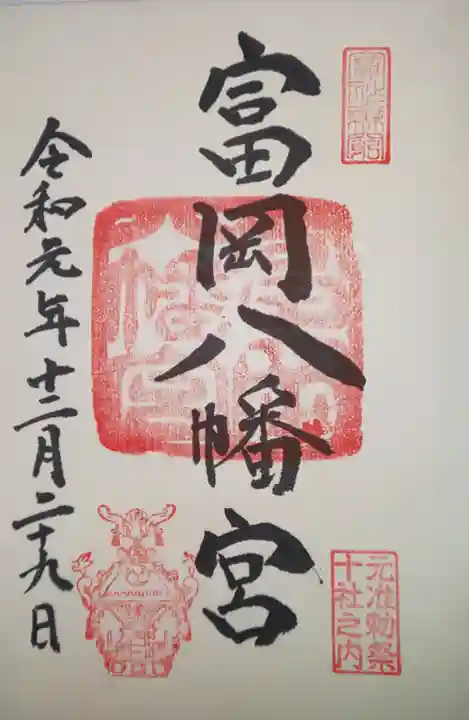 富岡八幡宮
元准勅祭
十社之内
令和元年十二月二十九日